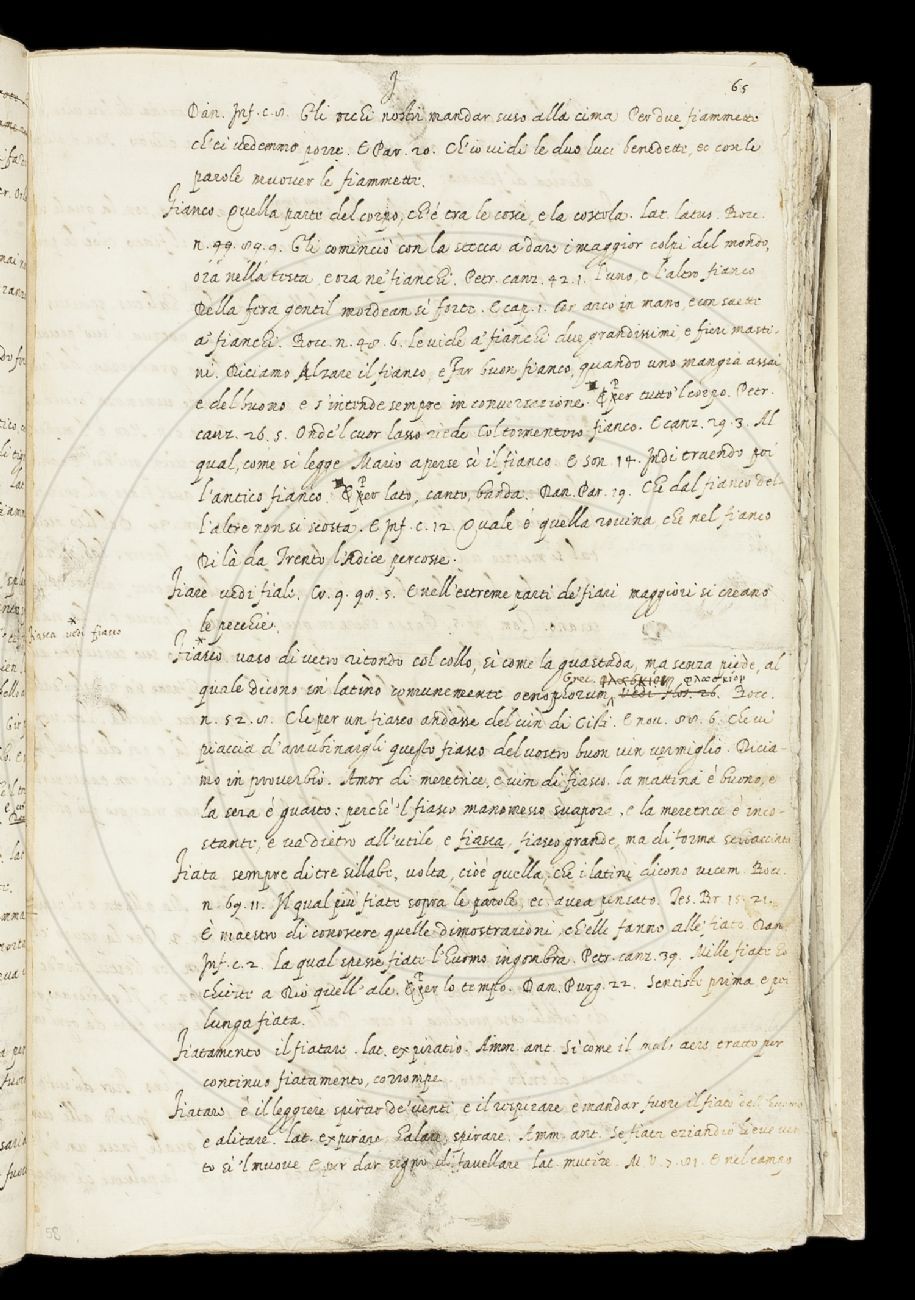 65
Dan. Inf. c. 8. Gli occhi nostri mandar suso alla cima Per due fiammette
ch'ei vedemmo porre. E Par. 20. Ch'io vidi le duo luci benedette, ec con le
parole muover le fiammette.
Fianco. Quella parte del corpo, ch'é tra le cosce, e la costola. Lat. latus. Bocc.
n. 99. 89. 9. Gli cominciò con la stecca a dare i maggior colpi del mondo,
ora nella testa, e ora ne' fianchi. Petr. canz. 42. 1. l'uno, e l'altro fianco
Della fera gentil mordean sì forte. E cap. 1. Con arco in mano, e con saette
a' fianchi. Bocc. n. 48. 6. Le vide a' fianchi due grandissimi, e fieri masti-
ni. Diciamo Alzare il fianco, e far buon fianco, quando uno mangia assai
e del buono e s'intende sempre in conversazione. ¶ per tutto'l corpo. Petr.
canz. 26. 5. Onde'l cuor lasso riede Col tormentoso fianco. E canz. 29. 3. Al
qual, come si legge Mario aperse sì il fianco. E son. 14. Indi traendo poi
l'antico fianco. ¶ per lato, canto, banda. Dan. Par. 19. Che dal fianco del-
l'altre non si scosta. E Inf. c. 12 Quale è quella rovina che nel fianco
Di là da Trento l'Adice percosse.
Fiare vedi fiale. Cr. 9. 98. 5. E nell'estreme parti de' fiari maggiori si creano
le pecchie.
Fiasca vedi fiasco
Fiasco vaso di vetro ritondo col collo, sì come la guastada, ma senza piede, al
Grec. φλασκίον
quale dicono in latino comunemente oenophorum, vedi flos. 26. Bocc.
n. 52. 8. Che per un fiasco andasse del vin di Cisti. E nov. 88. 6. Che vi
piaccia d'arrubinargli questo fiasco del vostro buon vin vermiglio. Dicia-
mo in proverbio. Amor di meretrice, e vin di fiasco. la mattina è buono, e
la sera è guasto: perchè 'l fiasco manomesso svapora, e la meretrice è inco-
stante, e va dietro all'utile, e fiasca, fiasco grande, ma di forma schiacciata
Fiata sempre di tre sillabe, volta, cioè quella, che i latini dicono vicem. Bocc.
n. 69. 11. Il qual più fiate sopra le parole, ec. avea pensato. Tes. Br. 15. 21.
E maestro di conoscere quelle dimostrazioni, ch'elli fanno alle fiate. Dan.
Inf. c. 2. La qual spesse fiate l'huomo ingombra. Petr. canz. 39. Mille fiate ho
chieste a Dio quell'ale. ¶ per lo tempo. Dan. Purg. 22. Sentisti prima e poi
lunga fiata.
Fiatamento il fiatare. lat. expiratio. Amm. ant. Sì come il mal, aere tratto per
continuo fiatamento, corrompe.
Fiatare è il leggiere spirar de' venti e il respirare e mandar fuori il fiato dell'huomo
e alitare. lat. expirare, halare, spirare. Amm. ant. Se fiata eziandio lieve ven-
to si'l muove E per dar segno di favellare lat. mutire. M. V. 7. 81. E nel campo
58